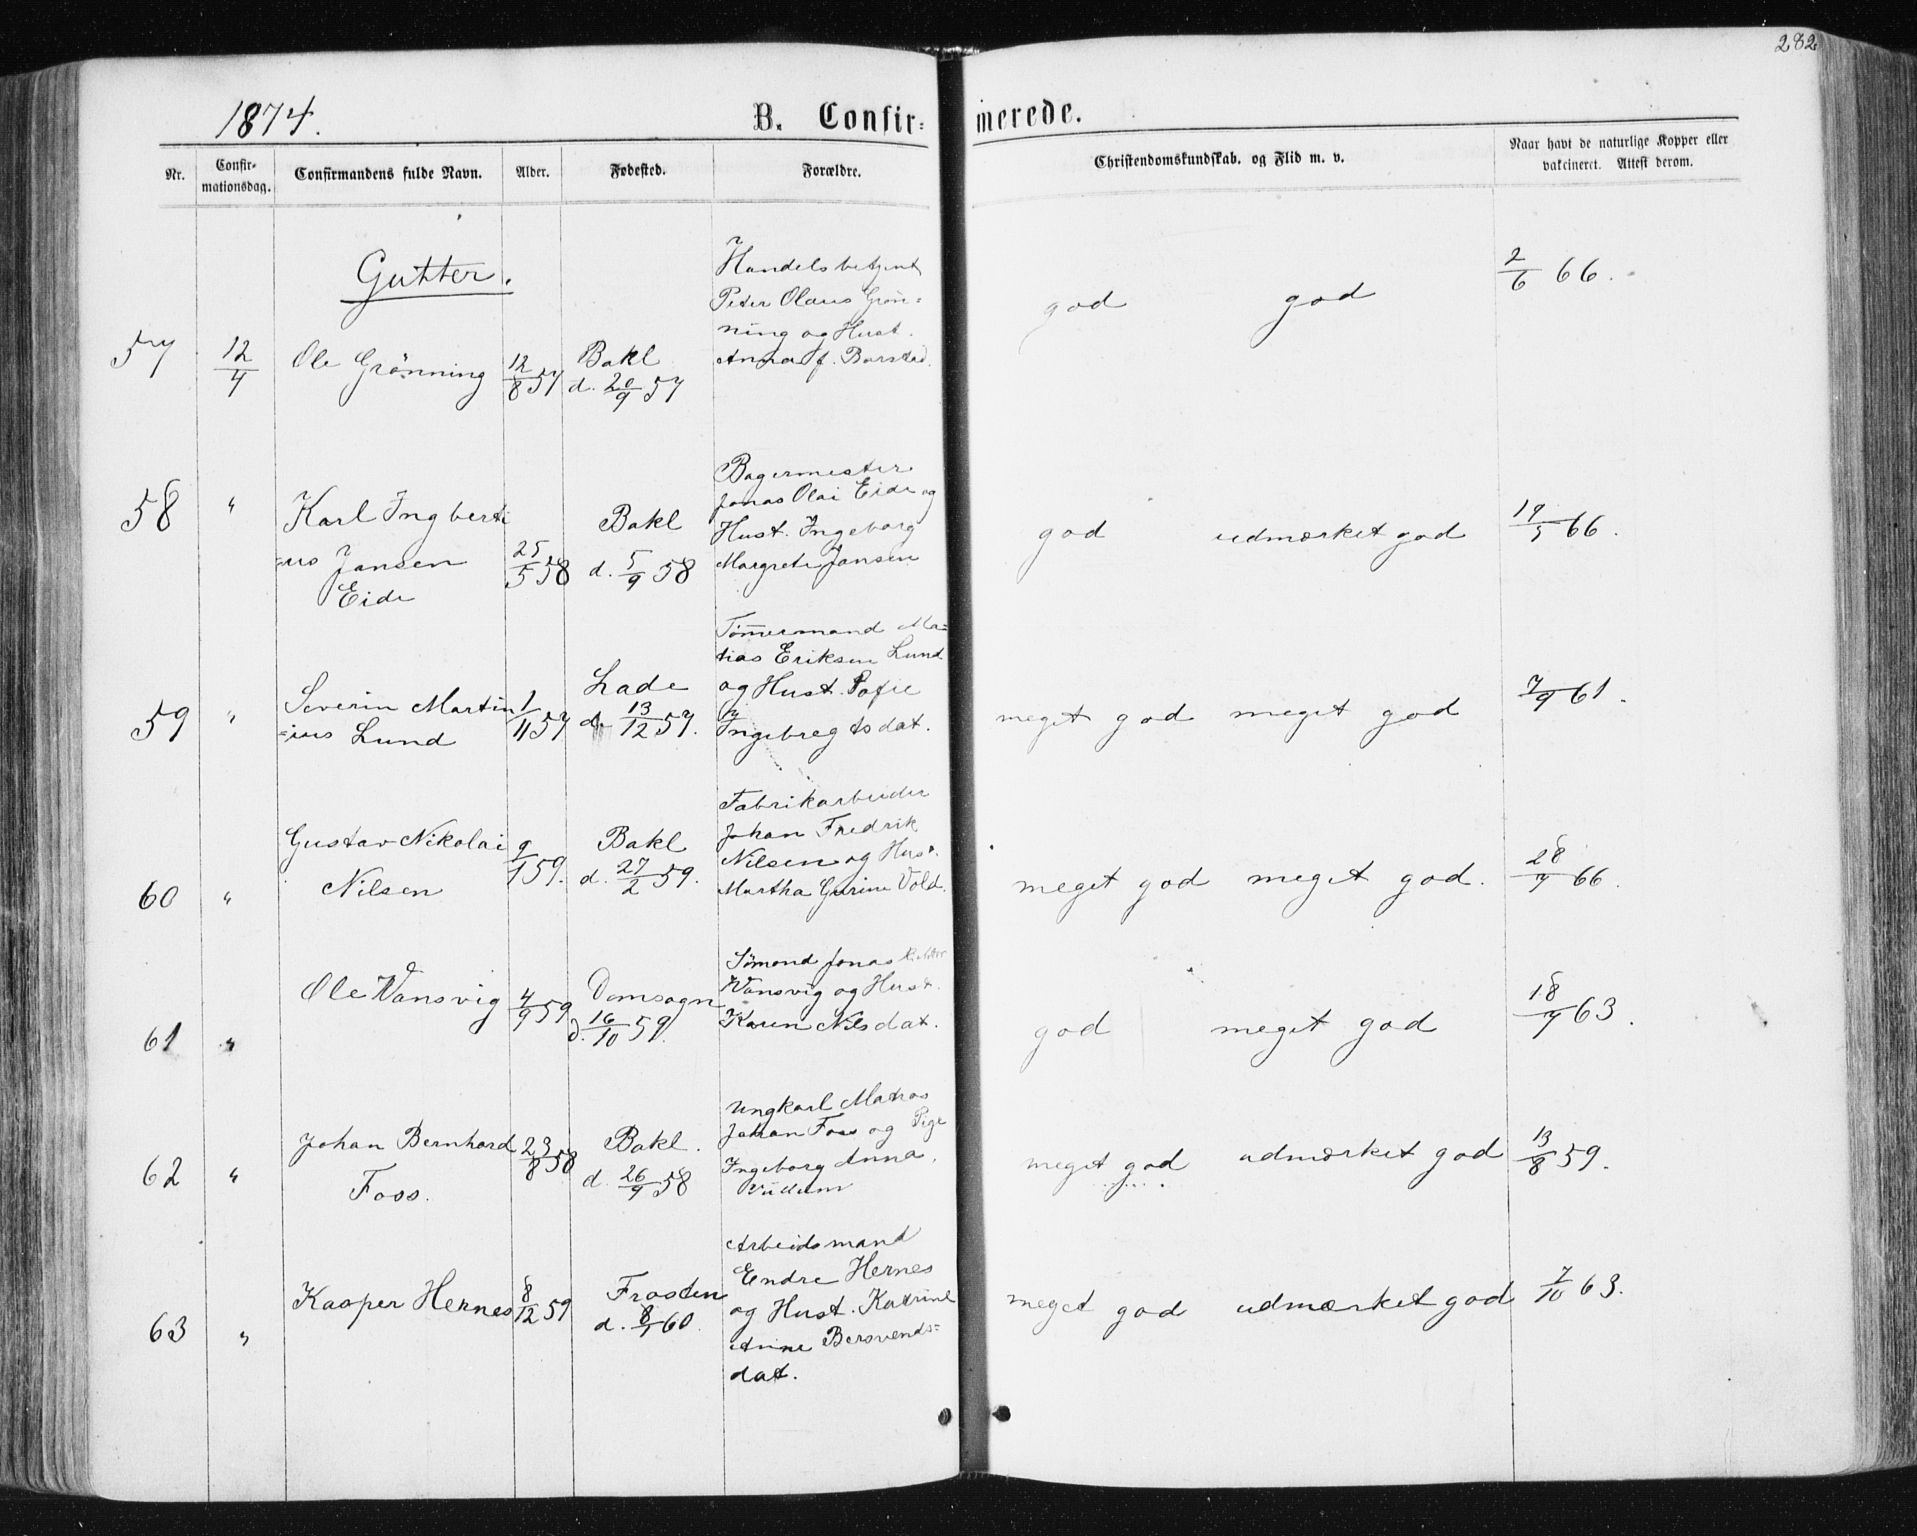 282
1874. B. Confirmerede.
Nr. Confirmationsdag. Confirmandens fulde Navn. Alder. Fødested. Forældre. Christendomskundskab. og Flid m. v. Naar havt de naturlige Kopper eller vakcineret. Attest derom.
Gutter.
Handelsbetjent
Peter Olaus Grøn=
ning og Hust.
Anna f. Borstad.
57 12/4 Ole Grønning 12/8 57 Bakl
d. 20/9 57
god god 2/6 66.
Bagermester
Jonas Olai Eide og
Hust. Ingeborg
Margrete Jansen
58 " Karl Ingberti
=us Jansen
Eide
25/5 58 Bakl
d. 5/9 58
god udmærket god 19/5 66.
Tømmermand Ma=
tias Eriksen Lund
og Hust. Sofie
Ingebregtsdat.
59 " Severin Martin
=ius Lund
1/11 57 Lade
d. 13/12 57.
meget god meget god 7/9 61.
Fabrikarbeider
Johan Fredrik
Nilsen og Hust.
Martha Gurine Vold.
60 " Gustav Nikolai
Nilsen
9/1 59. Bakl
d. 27/2 59.
meget god meget god. 28/7 66.
Sömand Jonas
Vansvig og Hust.
Karen Nilsdat.
61 " Ole Vansvig 4/9 59 Domsogn
d. 16/10 59.
god meget god 18/7 63.
Ungkarl Matros
Johan Foss og Pige
Ingeborg Anna
62 " Johan Bernhard
Foss.
23/8 58 Bakl.
d. 26/9 58
meget god udmærket god 13/8 59.
Arbeidsmand
Endre Hernes
og Hust. Katrine
Anne Bersvends=
dat.
63 " Kasper Hernes 8/12 59 Frosten
d. 8/1 60.
meget god udmærket god 7/10 63.